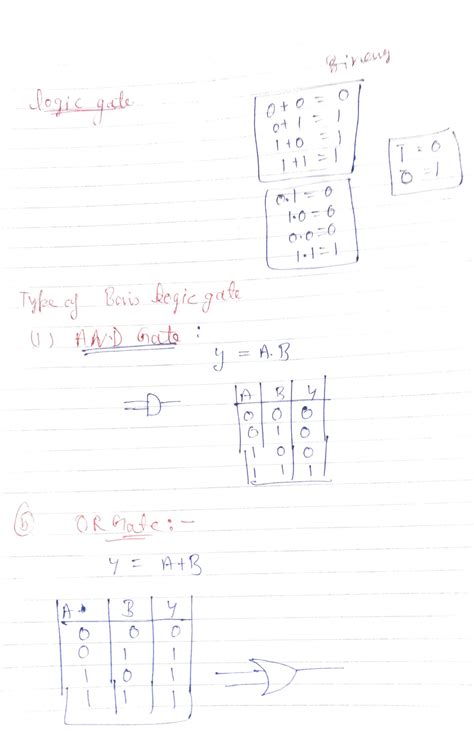 Binary
logic gate
0+0 = 0
0+1 = 1
1+0 = 1
1+1 = 1
1̅ = 0
0̅ = 1
0.1 = 0
1.0 = 0
0.0 = 0
1.1 = 1
Type of Basis logic gate
(1) AND Gate :
y = A.B
A B Y
0 0 0
0 1 0
1 0 0
1 1 1
OR Gate :-
y = A+B
A B Y
0 0 0
0 1 1
1 0 1
1 1 1